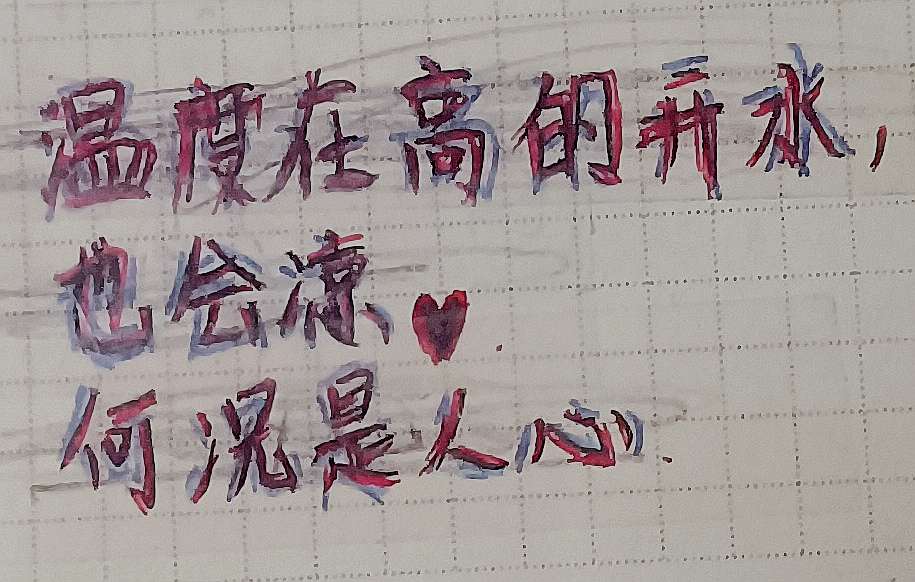 温度在高的开水，
也会凉♥.
何况是人心.